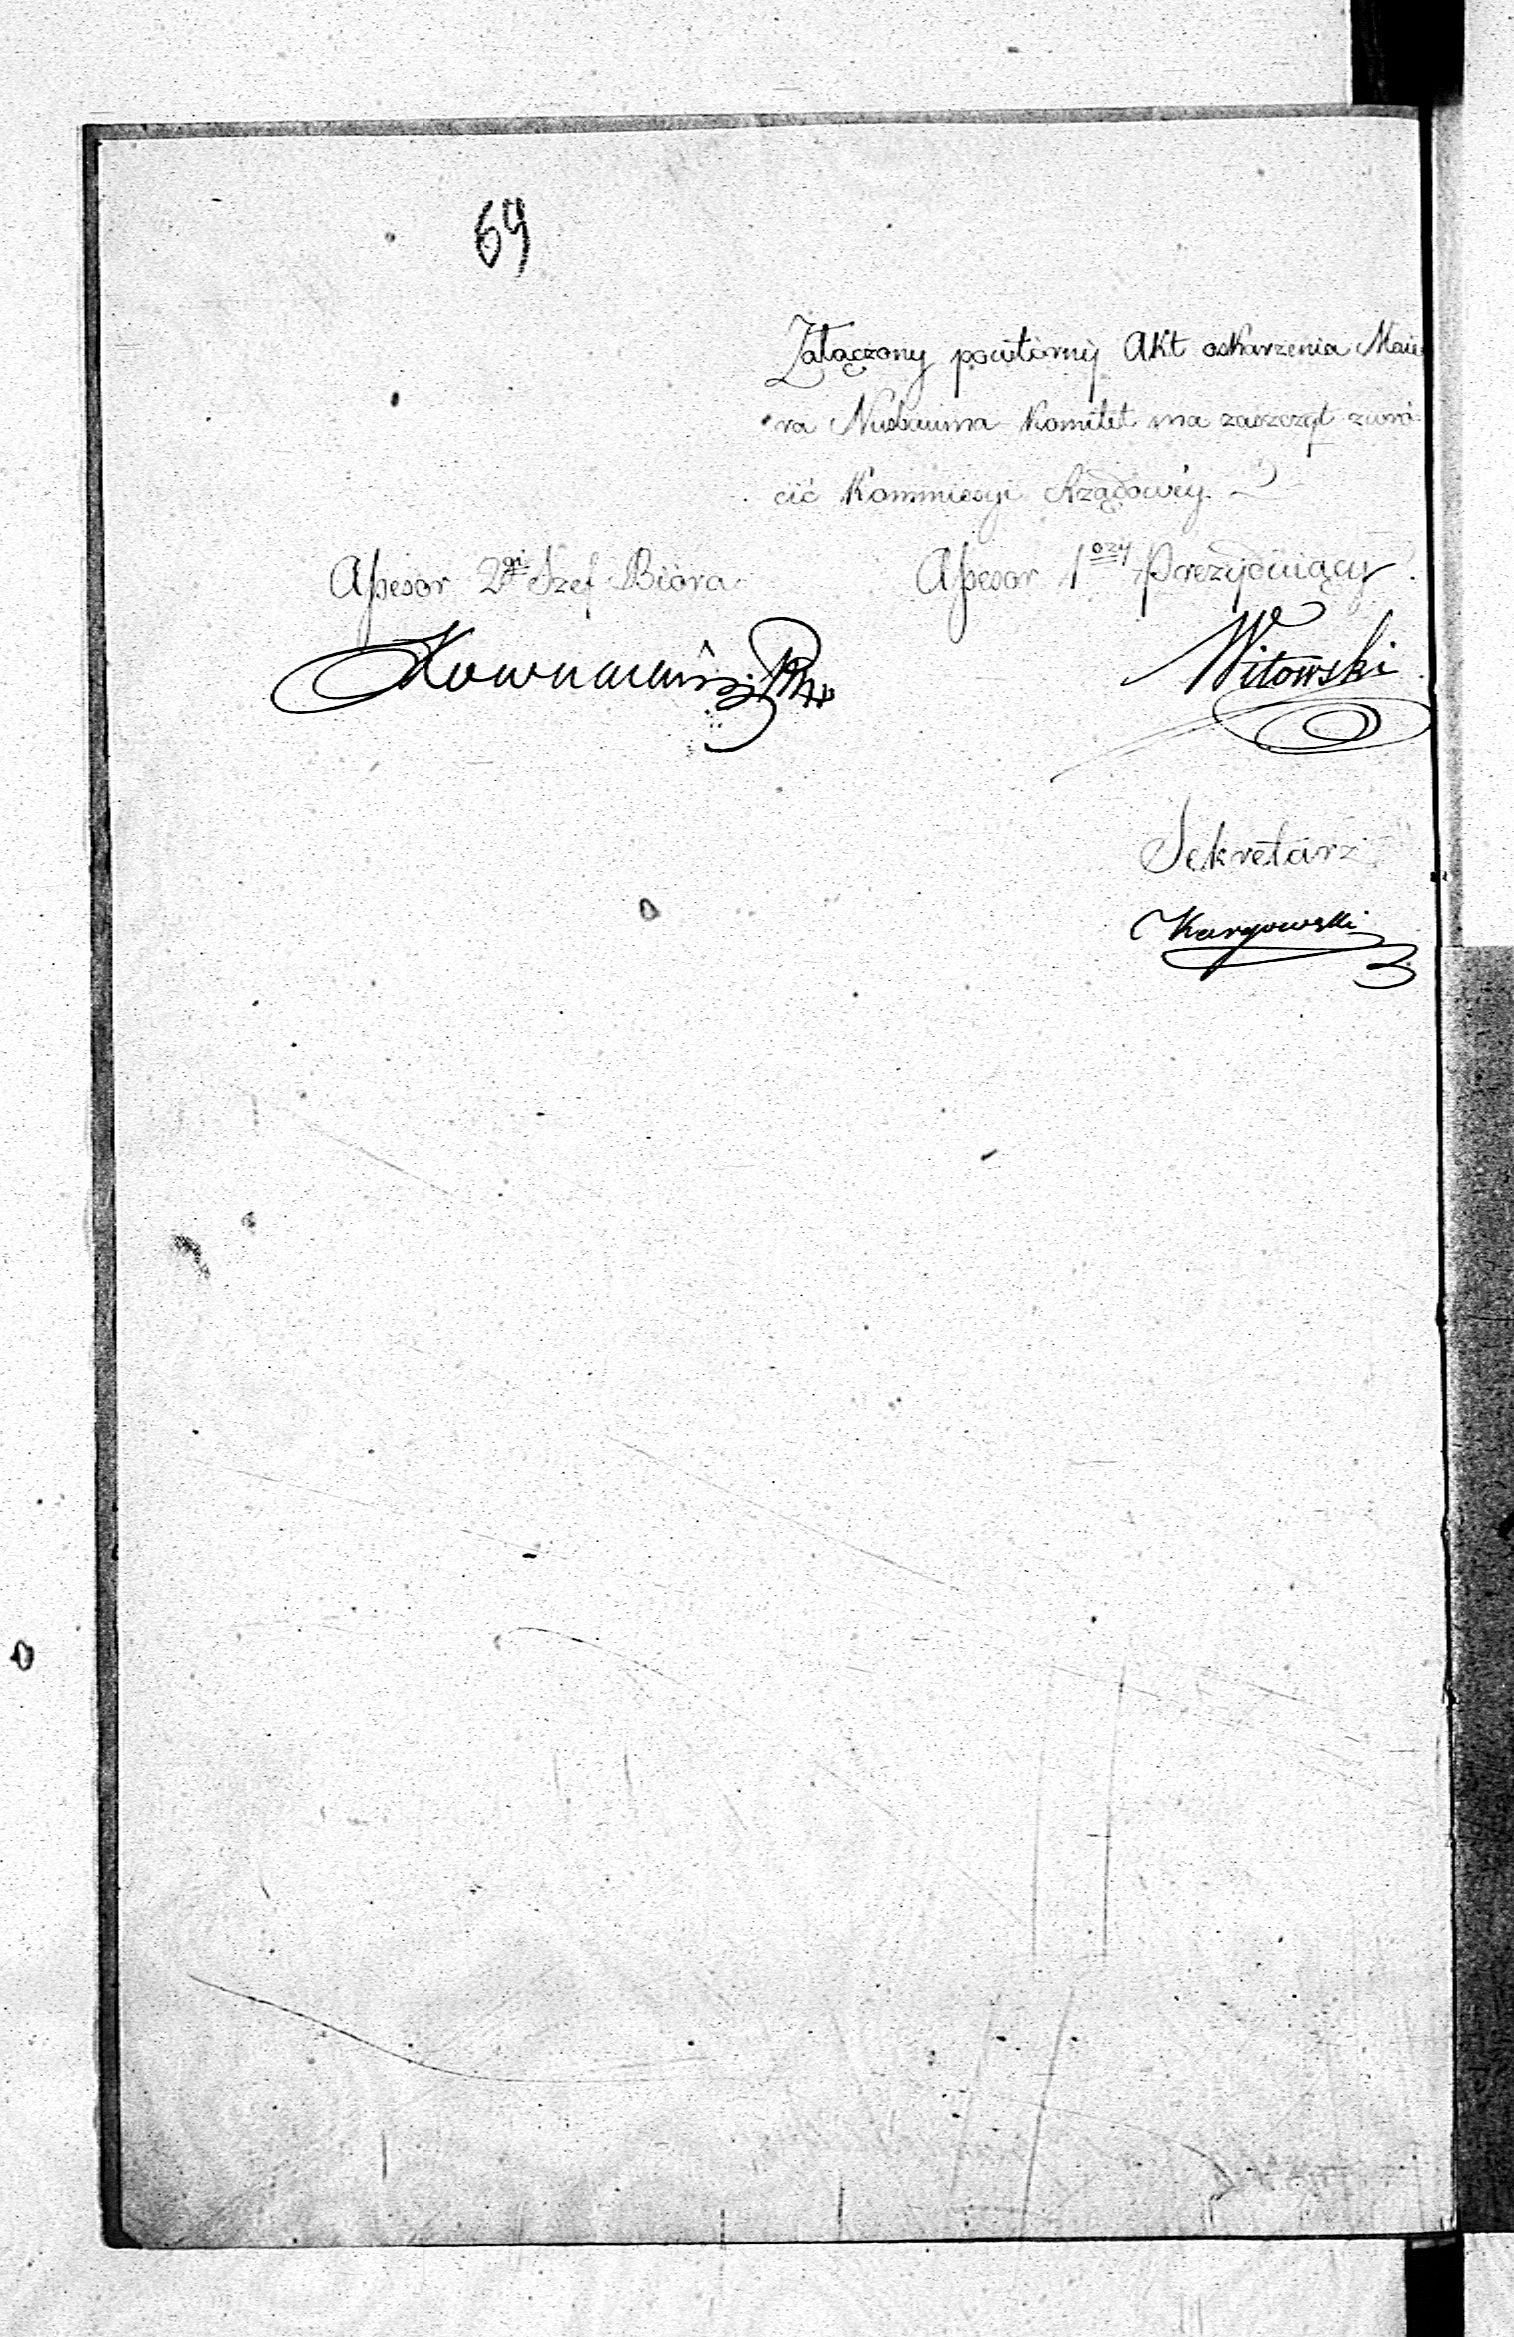 69
Załączony powtórny Akt oskarzenia Maie
ra Nusbauma Komitet ma zaszczyt zwró
cić Kommissyi Rządowéy.
Assesor 2gi Szef Bióra Assesor 1szy Prezyduiący.
Witowski
Sekretarz
Kargowski